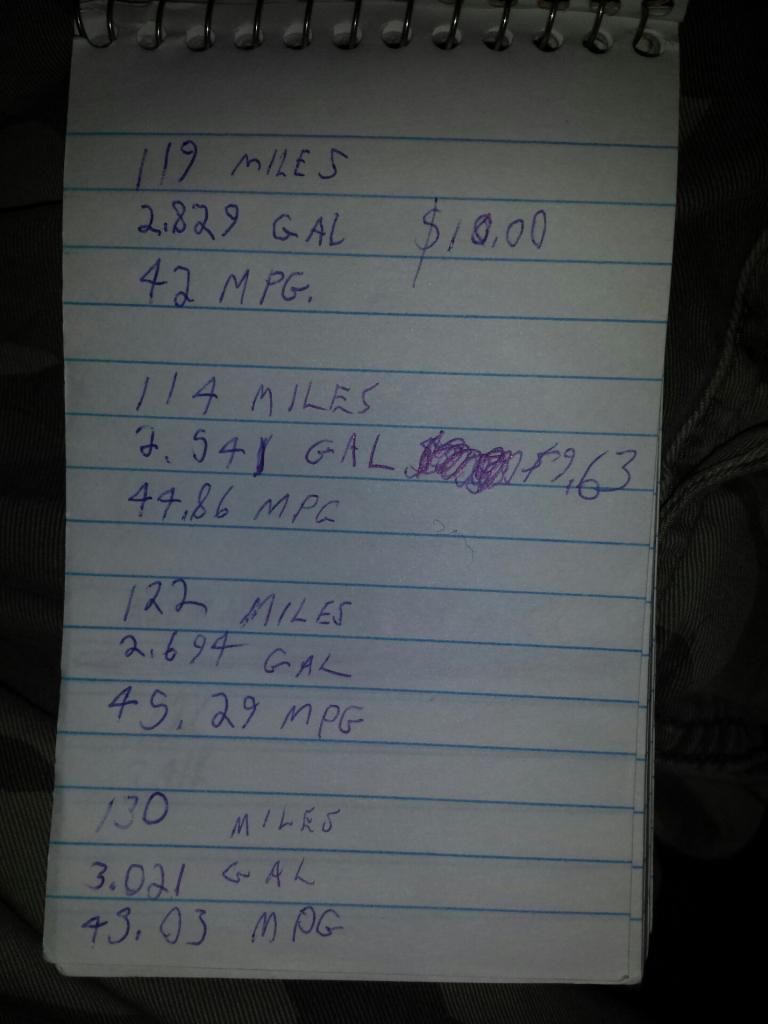 119 MILES
2.829 GAL $10.00
42 MPG.
114 MILES
2.541 GAL $9.63
44.86 MPG
122 MILES
2.694 GAL
45.29 MPG
130 MILES
3.021 GAL
43.03 MPG